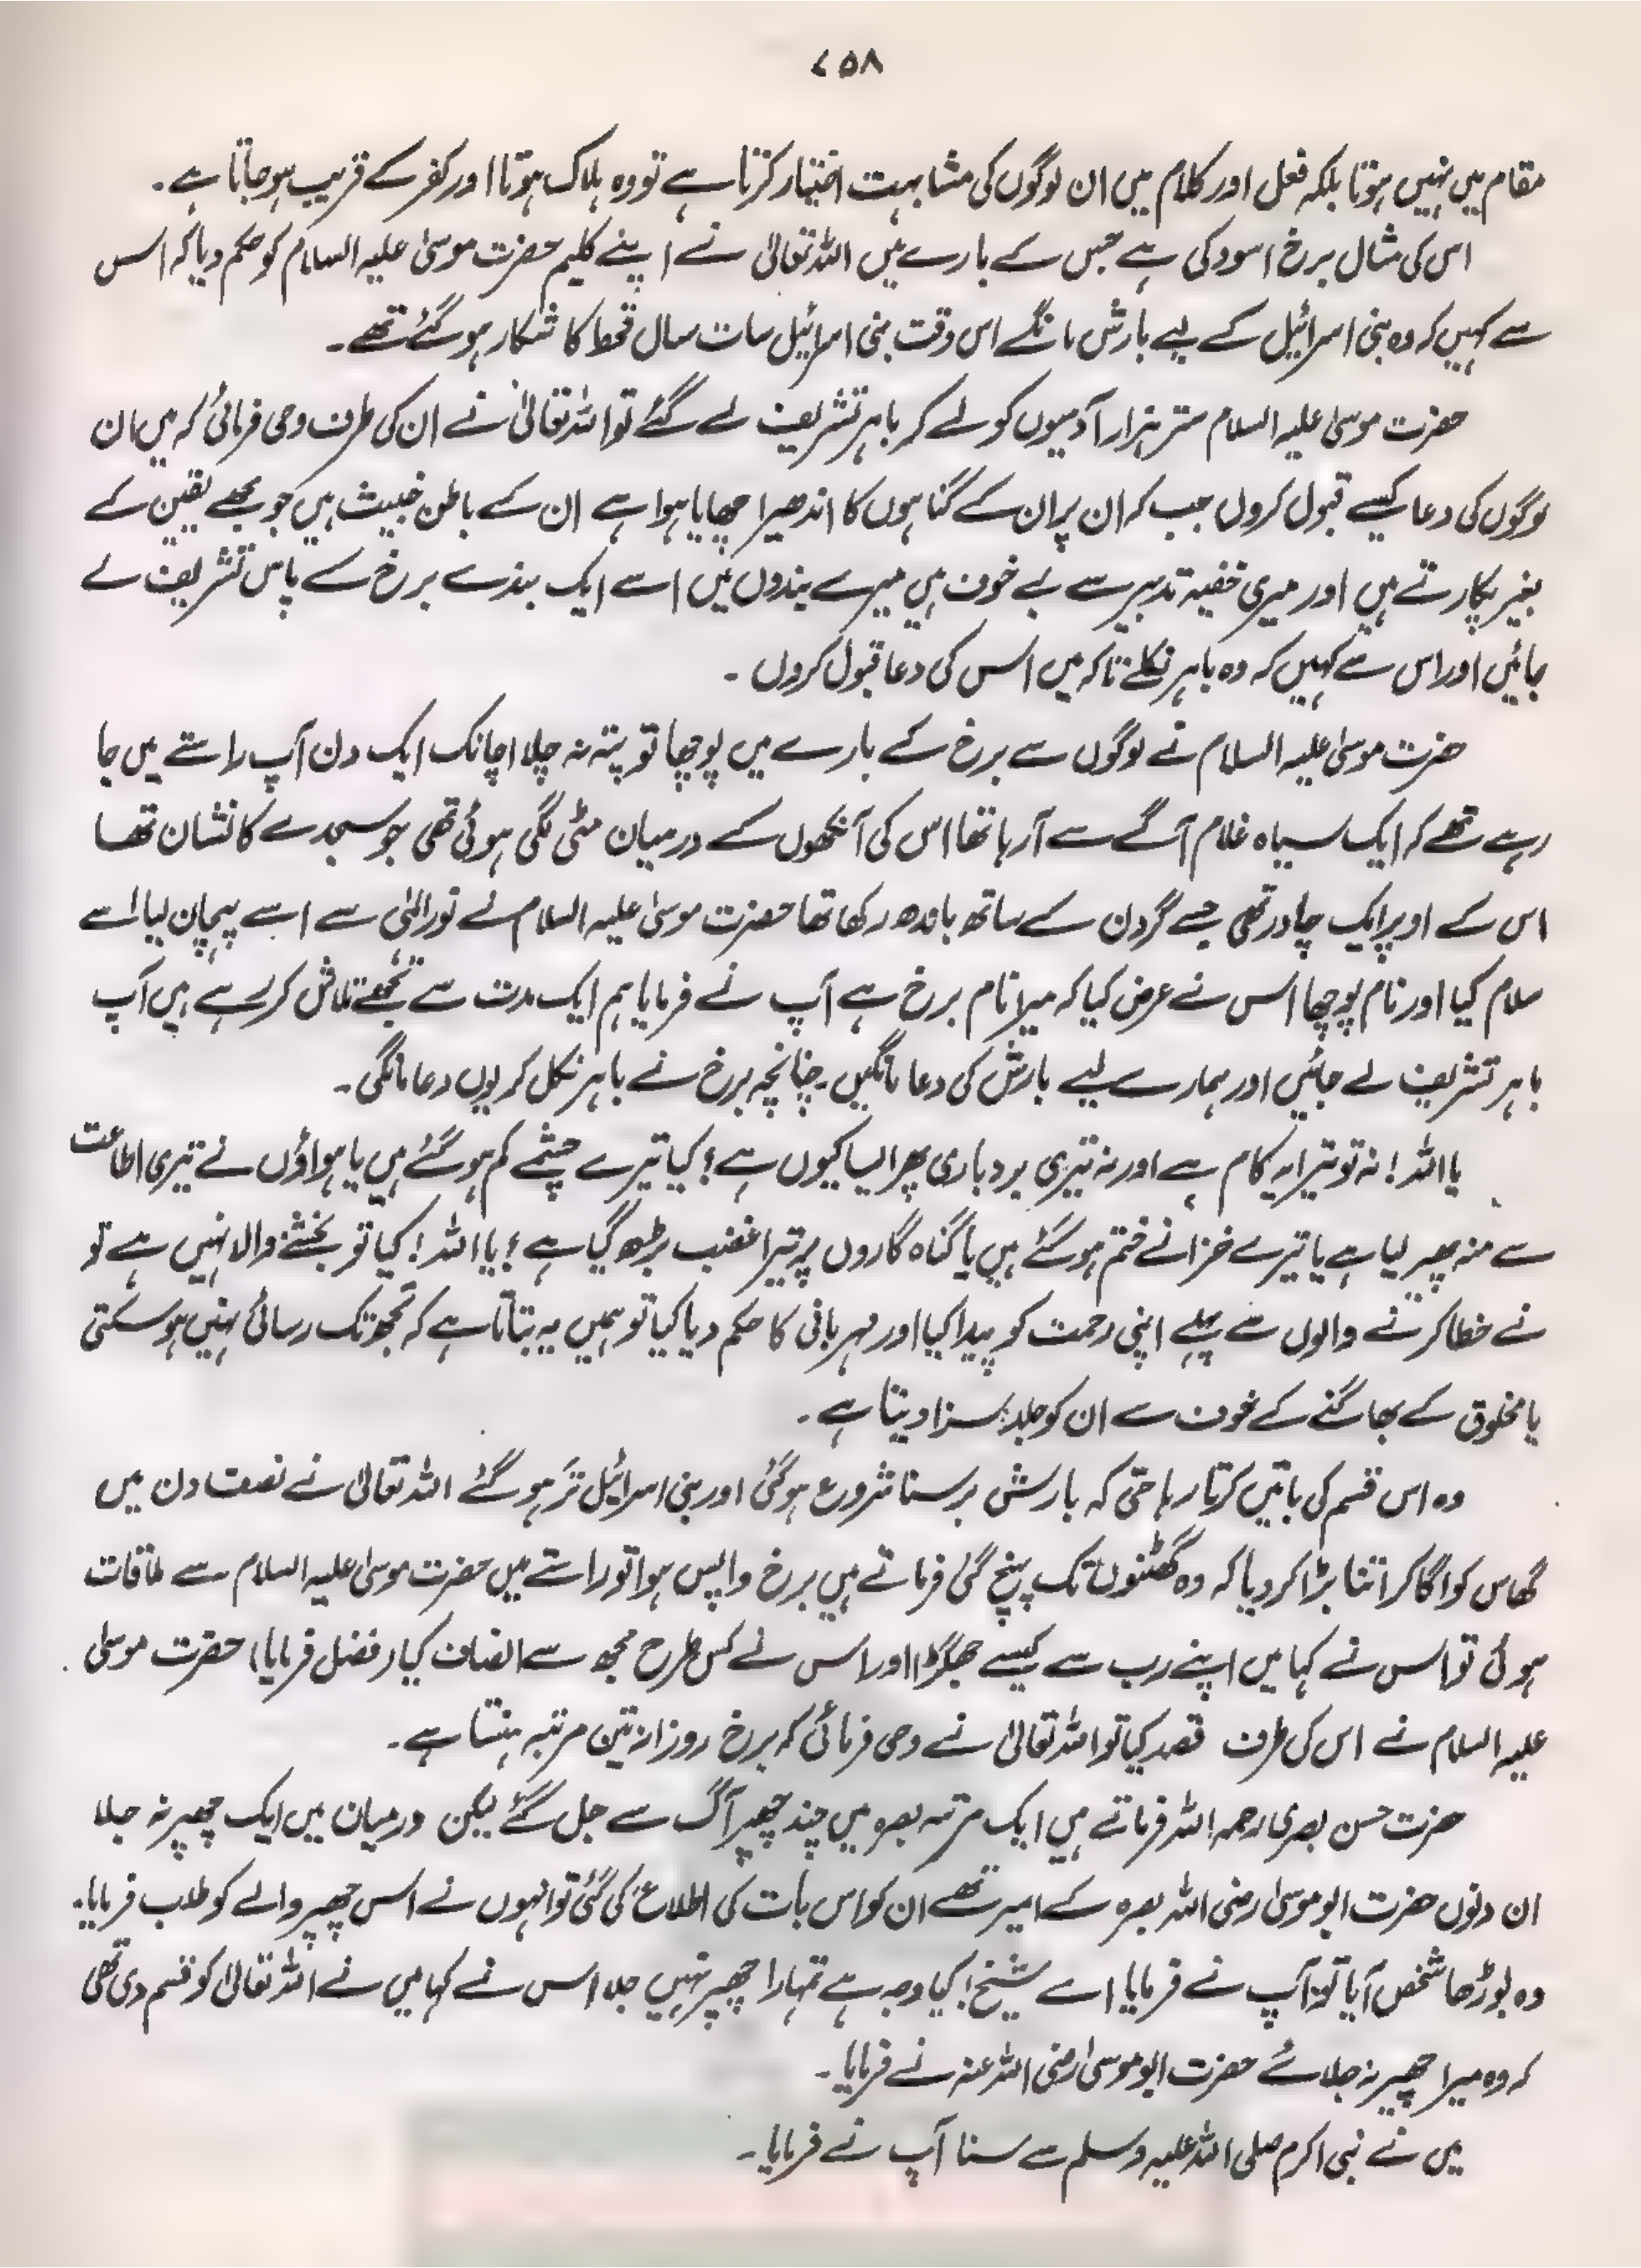 ۷۵۸
مقام میں نہیں ہوتا بلکہ فعل اور کلام میں ان لوگوں کی مشابہت اختیار کرتا ہے تو وہ ہلاک ہوتا اور کفر کے قریب ہو جاتا ہے۔
اس کی مثال برخ اسود کی ہے جس کے بارے میں اللہ تعالیٰ نے اپنے کلیم حضرت موسیٰ علیہ السلام کو حکم دیا کہ اس
سے کہیں کہ وہ بنی اسرائیل کے لیے بارش مانگے اس وقت بنی اسرائیل سات سال قحط کا شکار ہو گئے تھے۔
حضرت موسیٰ علیہ السلام ستر ہزار آدمیوں کو لے کر باہر تشریف لے گئے تو اللہ تعالیٰ نے ان کی طرف وحی فرمائی کہ میں ان
لوگوں کی دعا کیسے قبول کروں جب کہ ان پر ان کے گناہوں کا اندھیرا چھایا ہوا ہے ان کے باطن خبیث ہیں جو مجھے یقین کے
بغیر پکارتے ہیں اور میری خفیہ تدبیر سے بے خوف ہیں میرے بندوں میں اسے ایک بندے برخ کے پاس تشریف لے
جائیں اور اس سے کہیں کہ وہ باہر نکلے تاکہ میں اس کی دعا قبول کروں۔
حضرت موسیٰ علیہ السلام نے لوگوں سے برخ کے بارے میں پوچھا تو پتہ نہ چلا اچانک ایک دن آپ راستے میں جا
رہے تھے کہ ایک سیاہ غلام آگے سے آرہا تھا اس کی آنکھوں کے درمیان مٹی لگی ہوئی تھی جو سجدے کا نشان تھا
اس کے اوپر ایک چادر تھی جسے گردن کے ساتھ باندھ رکھا تھا حضرت موسیٰ علیہ السلام نے نور الٰہی سے اسے پہچان لیا اسے
سلام کیا اور نام پوچھا اس نے عرض کیا کہ میرا نام برخ ہے آپ نے فرمایا ہم ایک مدت سے تجھے تلاش کر رہے ہیں آپ
باہر تشریف لے جائیں اور ہمارے لیے بارش کی دعا مانگیں۔ چنانچہ برخ نے باہر نکل کر یوں دعا مانگی۔
یا اللہ! نہ تو تیرا یہ کام ہے اور نہ تیری بردباری پھر ایسا کیوں ہے؟ کیا تیرے چشمے کم ہو گئے ہیں یا ہواؤں نے تیری اطاعت
سے منہ پھیر لیا ہے یا تیرے خزانے ختم ہو گئے ہیں یا گناہ گاروں پر تیرا غضب بڑھ گیا ہے؟ یا اللہ! کیا تو بخشنے والا نہیں ہے تو
نے خطا کرنے والوں سے پہلے اپنی رحمت کو پیدا کیا اور مہربانی کا حکم دیا کیا تو ہمیں یہ بتاتا ہے کہ تجھ تک رسائی نہیں ہو سکتی
یا مخلوق کے بھاگنے کے خوف سے ان کو جلد سزا دیتا ہے۔
وہ اس قسم کی باتیں کرتا رہا حتیٰ کہ بارش برسنا شروع ہو گئی اور بنی اسرائیل تر ہو گئے اللہ تعالیٰ نے نصف دن میں
گھاس کو اگا کر اتنا بڑا کر دیا کہ وہ گھٹنوں تک پہنچ گئی فرماتے ہیں برخ واپس ہوا تو راستے میں حضرت موسیٰ علیہ السلام سے ملاقات
ہوئی تو اس نے کہا میں اپنے رب سے کیسے جھگڑا اور اس نے کس طرح مجھ سے انصاف کیا (فضل فرمایا) حضرت موسیٰ
علیہ السلام نے اس کی طرف قصد کیا تو اللہ تعالیٰ نے وحی فرمائی کہ برخ روزانہ تین مرتبہ ہنستا ہے۔
حضرت حسن بصری رحمہ اللہ فرماتے ہیں ایک مرتبہ بصرہ میں چند چھپر آگ سے جل گئے لیکن درمیان میں ایک چھپر نہ جلا
ان دنوں حضرت ابو موسیٰ رضی اللہ بصرہ کے امیر تھے ان کو اس بات کی اطلاع کی گئی تو انہوں نے اس چھپر والے کو طلب فرمایا۔
وہ بوڑھا شخص آیا تو آپ نے فرمایا اے شیخ! کیا وجہ ہے تمہارا چھپر نہیں جلا اس نے کہا میں نے اللہ تعالیٰ کو قسم دی تھی
کہ وہ میرا چھپر نہ جلائے حضرت ابو موسیٰ رضی اللہ عنہ نے فرمایا۔
میں نے نبی اکرم صلی اللہ علیہ وسلم سے سنا آپ نے فرمایا۔